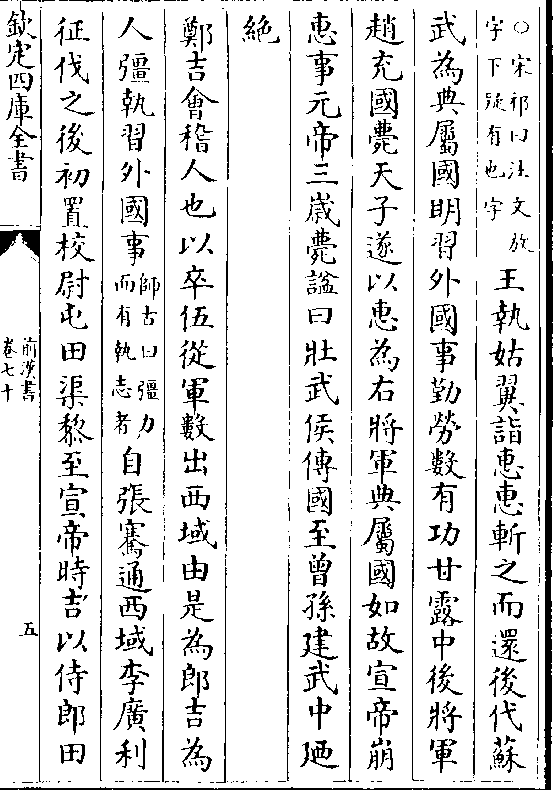 ○宋祁曰注文放
字下疑有也字
王執姑翼詣惠惠斬之而還後代蘇
武為典屬國明習外國事勤勞數有功甘露中後將軍
趙充國薨天子遂以惠為右將軍典屬國如故宣帝崩
惠事元帝三歲薨諡曰壯武侯傳國至曾孫建武中廼
絶
鄭吉會稽人也以卒伍從軍數出西域由是為郎吉為
人彊執習外國事
師古曰彊力
而有執志者
自張騫通西域李廣利
征伐之後初置校尉屯田渠黎至宣帝時吉以侍郎田
欽定四庫全書
前漢書
卷七十
五